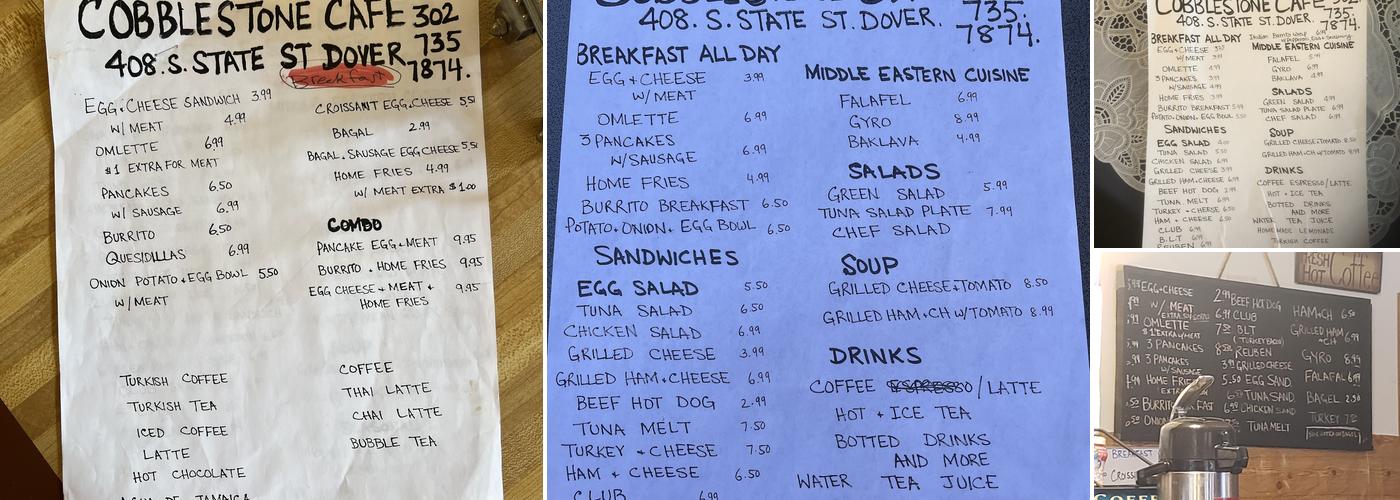 COBBLESTONE CAFE 302
408. S. STATE ST. DOVER. 735
7874.
Breakfast
EGG & CHEESE SANDWICH 3.99
W/ MEAT 4.99
OMLETTE 6.99
$1 EXTRA FOR MEAT
PANCAKES 6.50
W/ SAUSAGE 6.99
BURRITO 6.50
QUESIDILLAS 6.99
ONION POTATO & EGG BOWL 5.50
W/ MEAT
CROISSANT EGG & CHEESE
BAGAL 2.99
BAGAL. SAUSAGE EGG CHEESE
HOME FRIES 4.99
W/ MEAT EXTRA $1.00
COMBO
PANCAKE EGG & MEAT 9.95
BURRITO & HOME FRIES 9.95
EGG CHEESE & MEAT & 9.95
HOME FRIES
TURKISH COFFEE
TURKISH TEA
ICED COFFEE
LATTE
HOT CHOCOLATE
COFFEE
THAI LATTE
CHAI LATTE
BUBBLE TEA
408. S. STATE ST. DOVER. 735.
7874.
BREAKFAST ALL DAY
EGG & CHEESE 3.99
W/ MEAT
OMLETTE 6.99
3 PANCAKES
W/ SAUSAGE 6.99
HOME FRIES 4.99
BURRITO BREAKFAST 6.50
POTATO. ONION & EGG BOWL 6.50
SANDWICHES
EGG SALAD 5.50
TUNA SALAD 6.50
CHICKEN SALAD 6.99
GRILLED CHEESE 3.99
GRILLED HAM & CHEESE 6.99
BEEF HOT DOG 2.99
TUNA MELT 7.50
TURKEY & CHEESE 7.50
HAM & CHEESE 6.50
CLUB 6.99
MIDDLE EASTERN CUISINE
FALAFEL 6.99
GYRO 8.99
BAKLAVA 4.99
SALADS
GREEN SALAD 5.99
TUNA SALAD PLATE 7.99
CHEF SALAD
SOUP
GRILLED CHEESE & TOMATO 8.50
GRILLED HAM & CH W/ TOMATO 8.99
DRINKS
COFFEE ESPRESSO / LATTE
HOT & ICE TEA
BOTTED DRINKS
AND MORE
WATER TEA JUICE
COBBLESTONE CAFE 302
408. S. STATE ST. DOVER. 735
7874.
BREAKFAST ALL DAY
EGG & CHEESE
W/ MEAT
OMLETTE 4.99
3 PANCAKES
W/ SAUSAGE
HOME FRIES
BURRITO BREAKFAST
POTATO. ONION. EGG BOWL
SANDWICHES
EGG SALAD
TUNA SALAD
CHICKEN SALAD
GRILLED CHEESE
GRILLED HAM & CHEESE
BEEF HOT DOG
TUNA MELT
TURKEY & CHEESE
HAM & CHEESE
CLUB
B.L.T
REUBEN
MIDDLE EASTERN CUISINE
FALAFEL
GYRO
BAKLAVA 4.99
SALADS
GREEN SALAD
TUNA SALAD PLATE
CHEF SALAD
SOUP
GRILLED CHEESE & TOMATO
GRILLED HAM & CH W/ TOMATO
DRINKS
COFFEE ESPRESSO / LATTE
HOT & ICE TEA
BOTTED DRINKS
AND MORE
WATER TEA JUICE
HOME MADE LEMONADE
TURKISH COFFEE
FRESH
HOT Coffee
EGG & CHEESE
W/ MEAT
OMLETTE
$1 EXTRA W/ MEAT
3 PANCAKES
3 PANCAKES
W/ SAUSAGE
HOME
ONION
2.99 BEEF HOT DOG
CLUB
BLT
(TURKEY BACON)
REUBEN
GRILLED CHEESE
5.50 EGG SAND.
TUNA SAND.
CHICKEN SAND
TUNA MELT
HAM & CH 6.50
GRILLED HAM
& CH
GYRO 8.99
FALAFAL
BAGEL 2.50
TURKEY
BREAKFAST